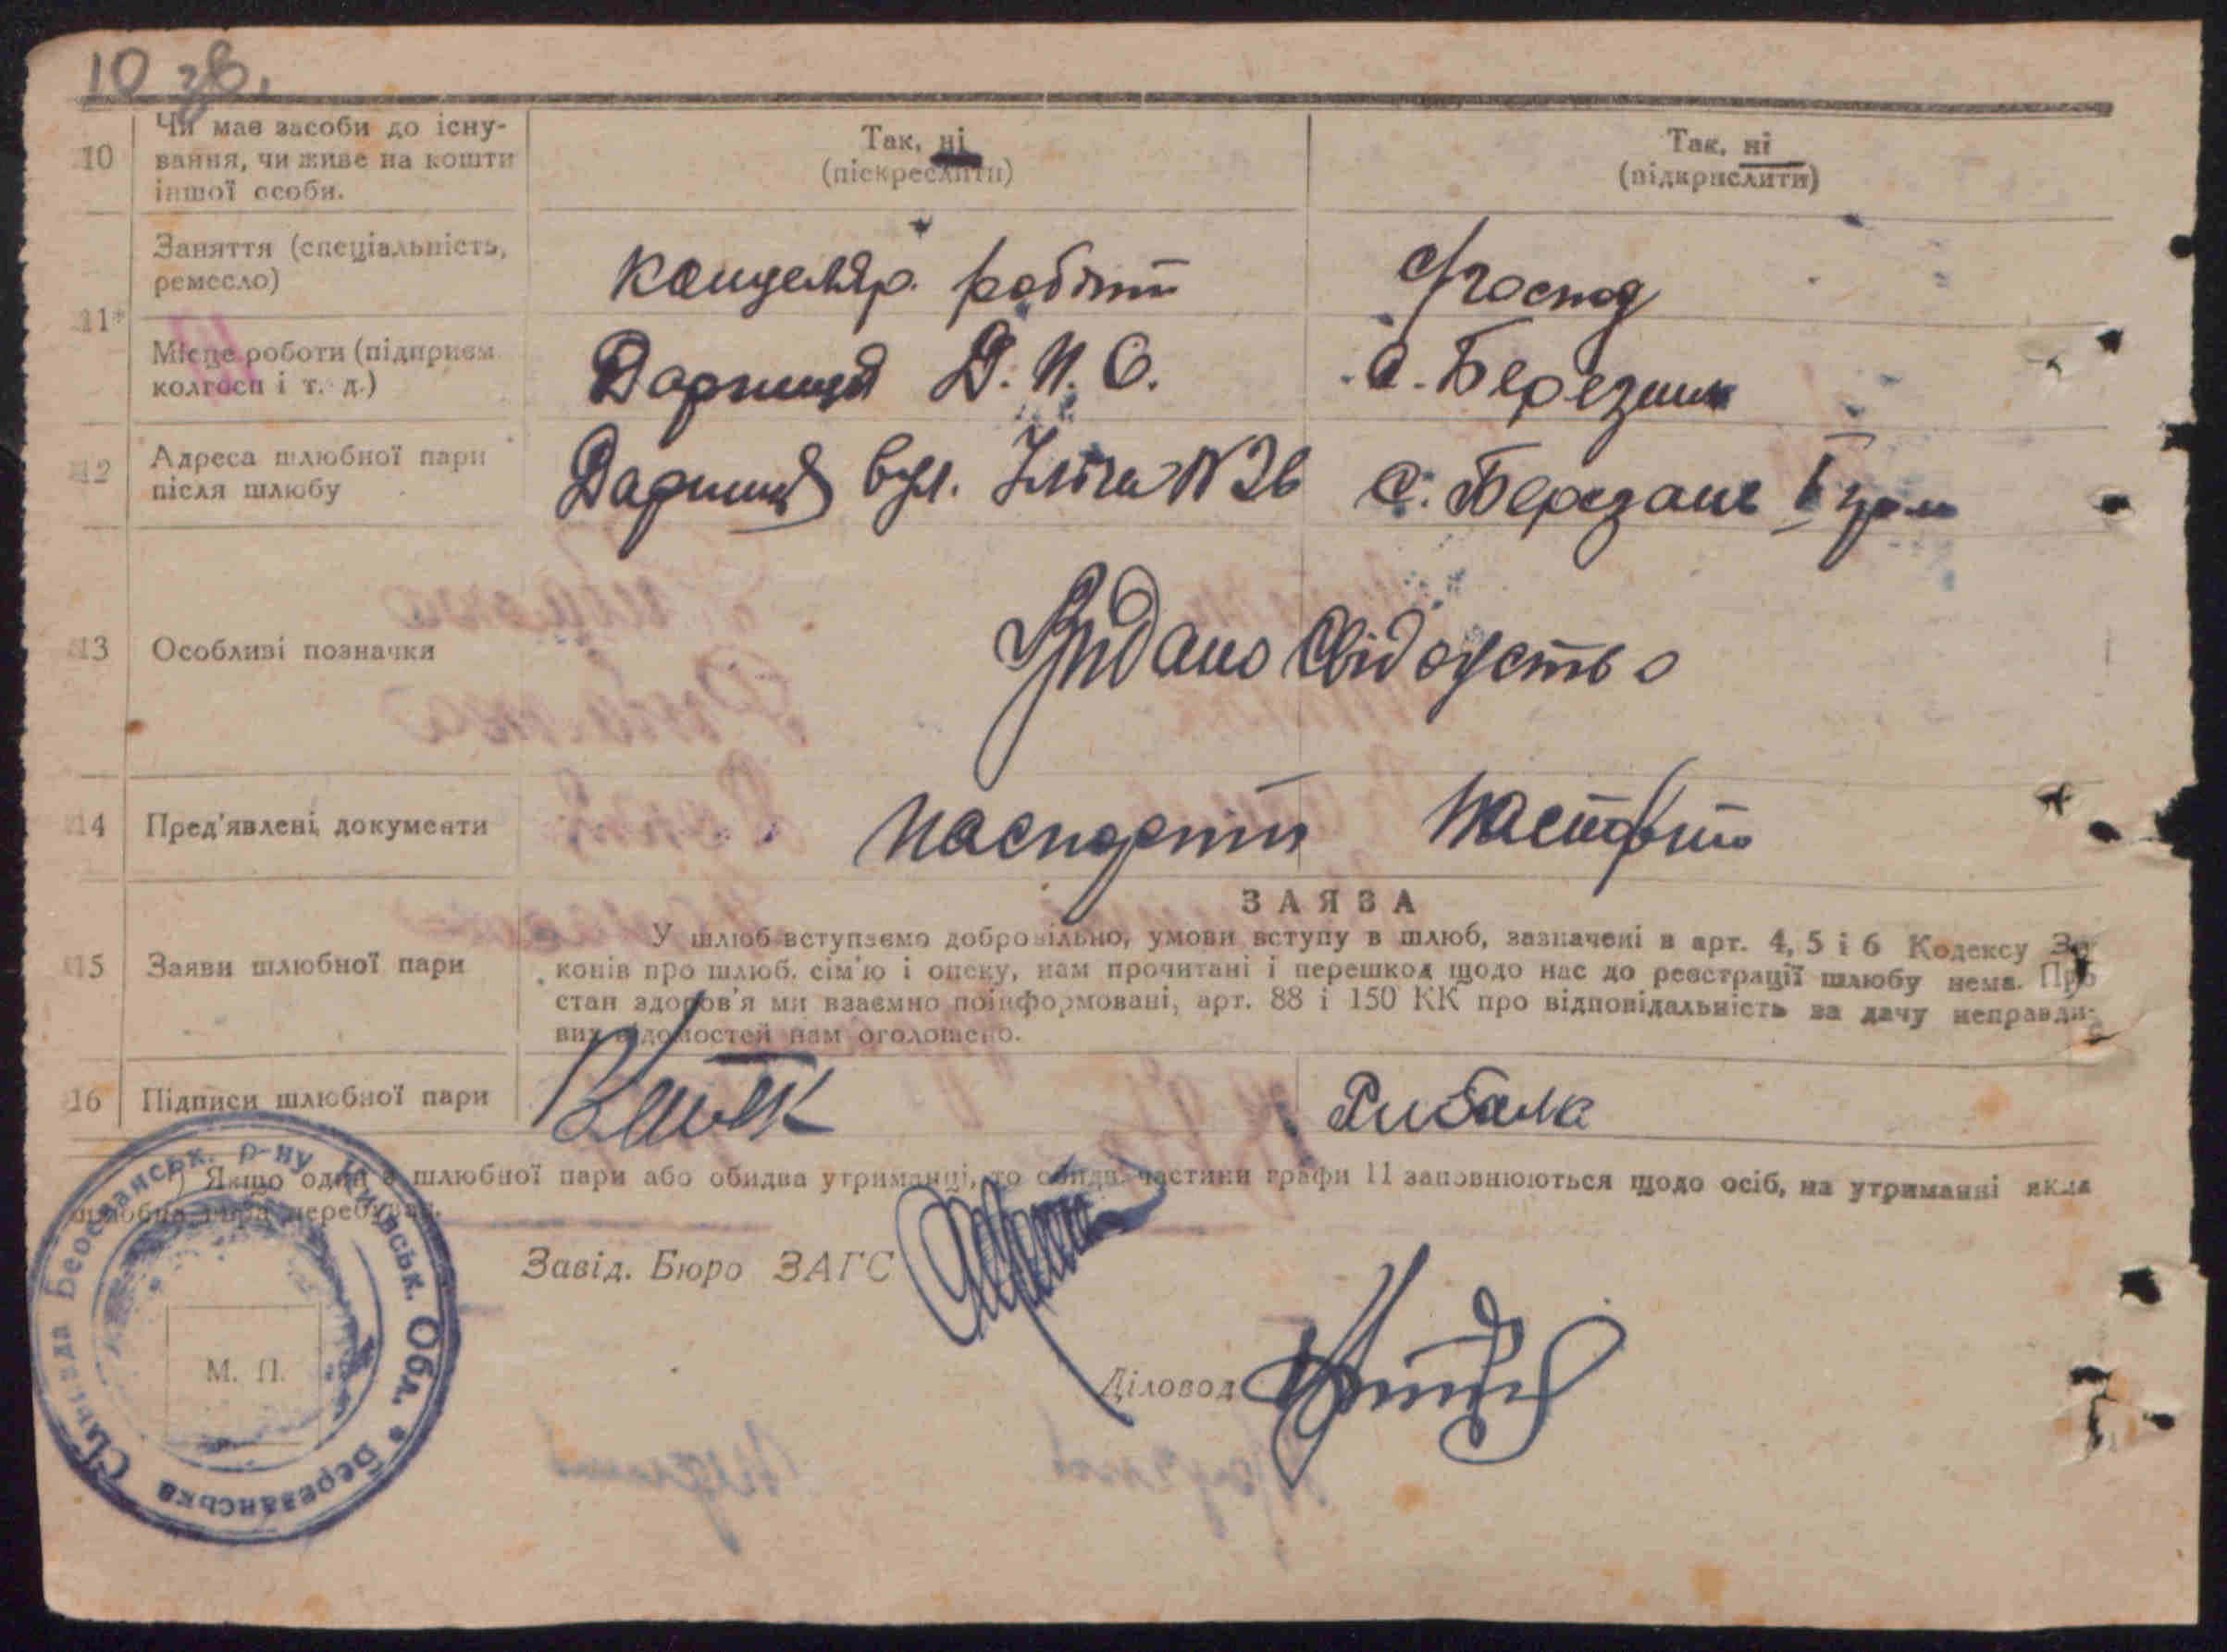 10 зв.
10
Чи має засоби до існу-
вання, чи живе на кошти
іншої особи.
Так, ні
(піскреслити)
Так, ні
(підкрислити)
11*
Заняття (спеціальність,
ремесло)
канцеляр. робітн
с/господ
Місце роботи (підприєм
колгосп і т. д.)
Дарниця
с. Березань
12
Адреса шлюбної пари
після шлюбу
Дарниця вул. Ілліча №26
с. Березань І
13
Особливі позначки
Видано свідоцтво
14
Пред'явлені документи
паспорти паспорти
ЗАЯВА
15
Заяви шлюбної пари
У шлюб вступаємо добровільно, умови вступу в шлюб, зазначені в арт. 4, 5 і 6 Кодексу За
конів про шлюб, сім'ю і опеку, нам прочитані і перешкод щодо нас до реєстрації шлюбу нема. Про
стан здоров'я ми взаємно поінформовані, арт. 88 і 150 КК про відповідальність за дачу неправди-
вих відомостей нам оголошено.
16
Підписи шлюбної пари
Рибалка
) Якщо один з шлюбної пари або обидва утриманці, то обидві частини графи 11 заповнюються щодо осіб, на утриманні яких
шлюбна пара перебуває.
Завід. Бюро ЗАГС
Діловод
М. П.
Березанська Сільрада Березанськ. р-ну Київськ. Обл. *